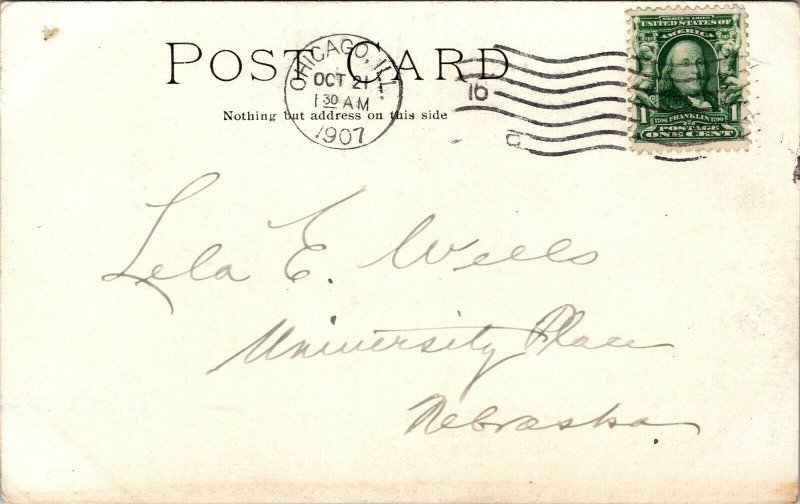 POST CARD
CHICAGO, ILL.
OCT 21
1 30 AM
1907
Nothing but address on this side
10
SERIES 1902
UNITED STATES OF
AMERICA
1 1706 FRANKLIN 1790 1
POSTAGE
ONE CENT
Lela E. Wells
University Place
Nebraska.